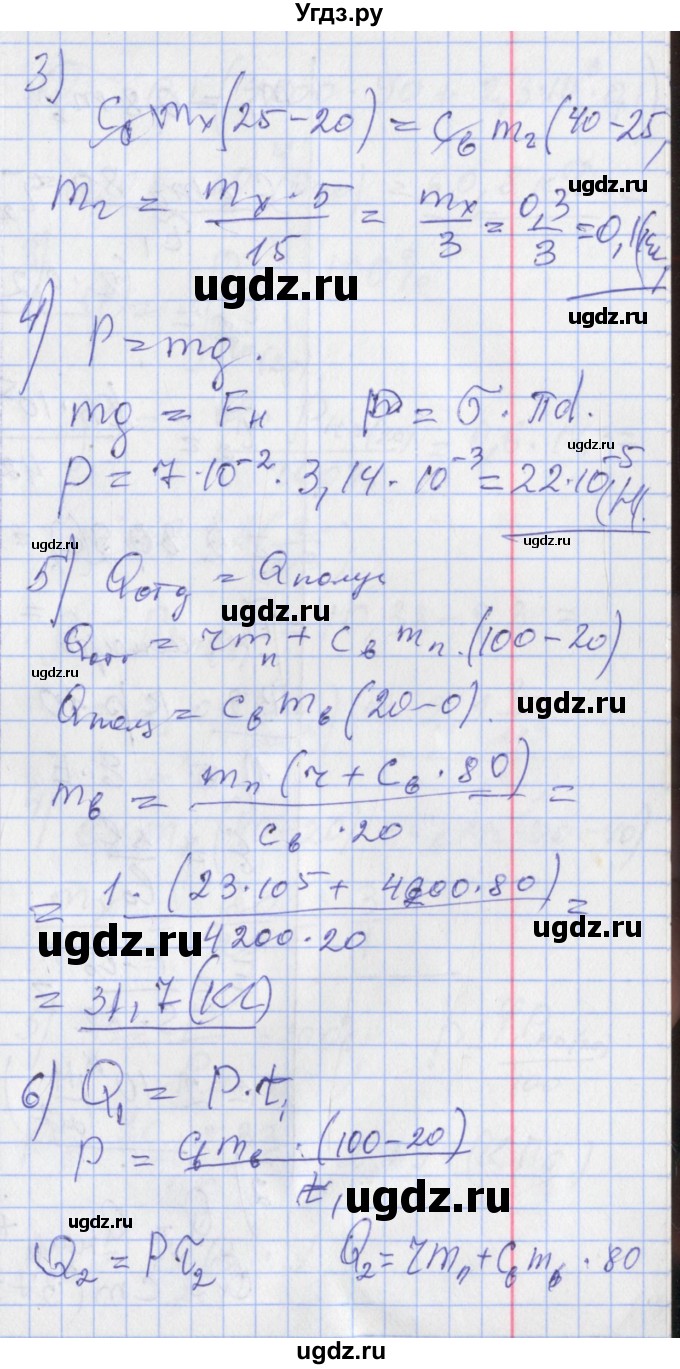 Угдз.ру
3)
cв mх (25-20) = cв mг (40-25)
mг = mх · 5 / 15 = mх / 3 = 0,3 / 3 = 0,1 (кг)
ugdz.ru
ugdz.ru
ugdz.ru
4) P = mg.
mg = Fн P = σ · πd.
ugdz.ru
P = 7·10⁻² · 3,14 · 10⁻³ = 22·10⁻⁵ (Н).
ugdz.ru
ugdz.ru
5) Qотд = Qполуч
ugdz.ru
Qотд = rmп + cв mп · (100-20)
ugdz.ru
ugdz.ru
Qполуч = cв mв (20-0).
mв = mп (r + cв · 80) / cв · 20 =
= 1 · (23·10⁵ + 4200·80) / 4200·20 =
ugdz.ru
ugdz.ru
= 31,7 (кг)
6) Q₁ = P · t₁
P = cв mв · (100-20) / t₁
ugdz.ru
ugdz.ru
Q₂ = P τ₂ Q₂ = rmп + cв mв · 80
ugdz.ru